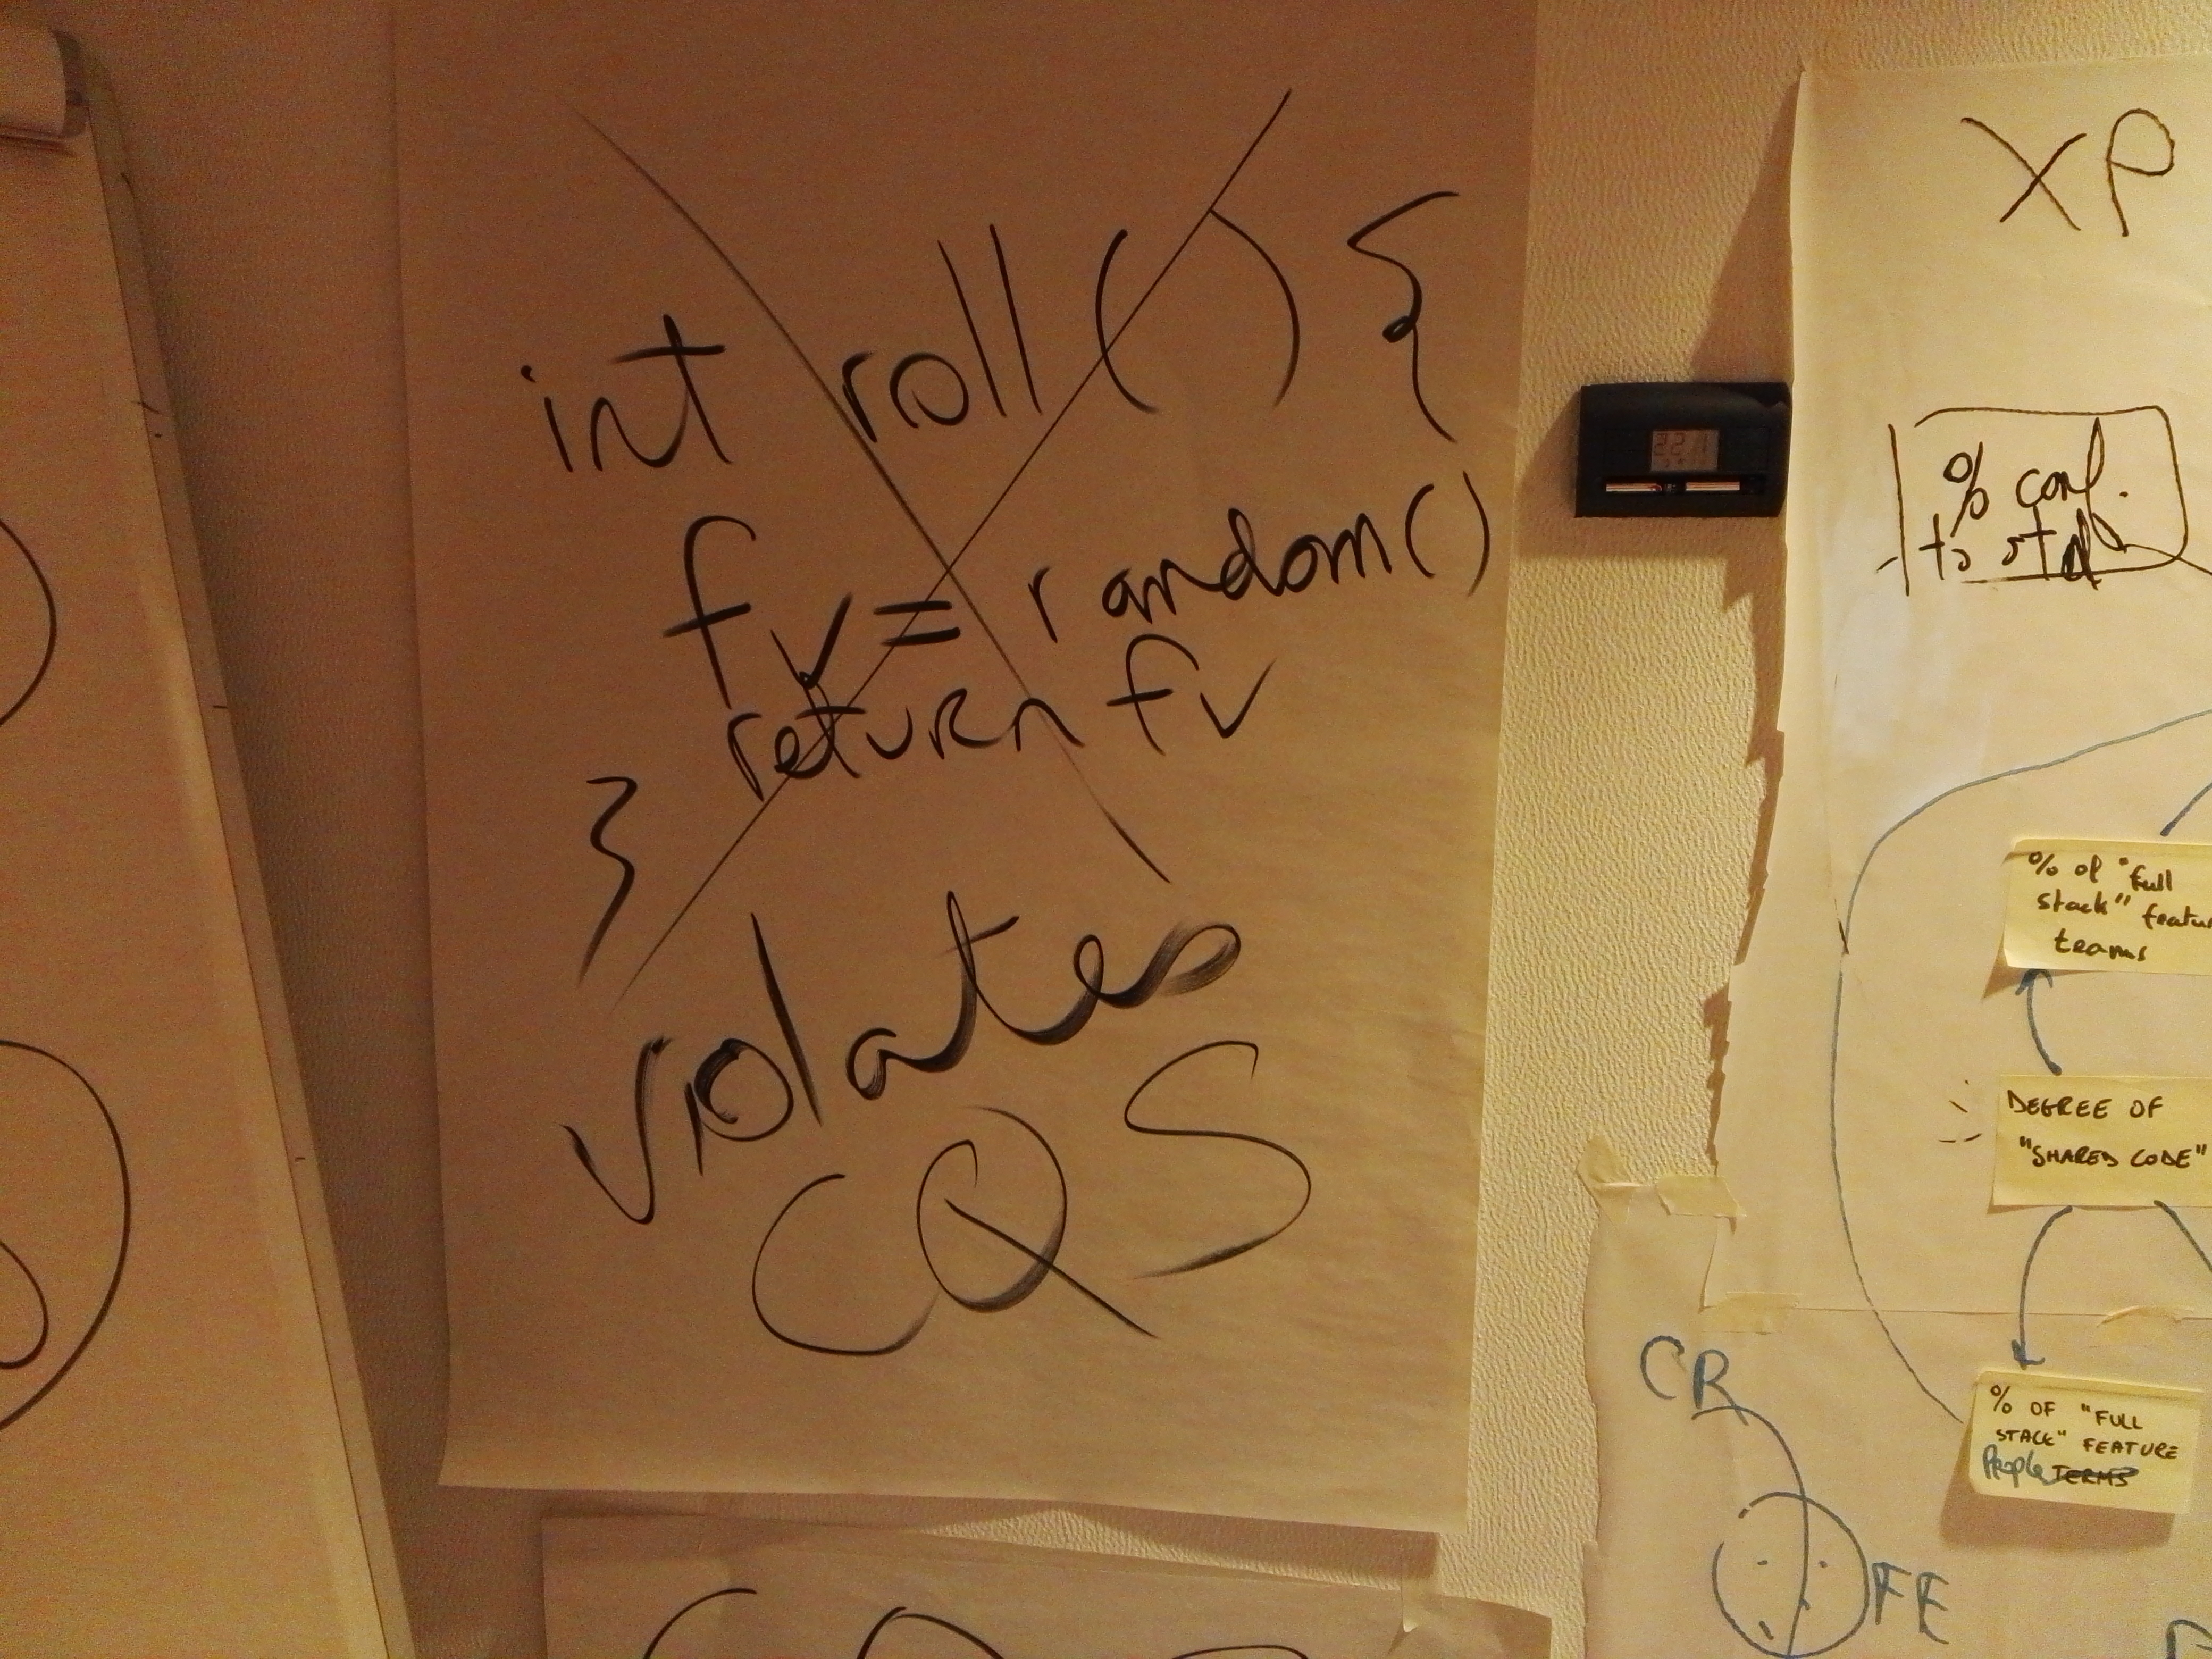 int roll() {
fv = random()
return fv
}
violates
CQS
XP
% conf.
to std
% of "full
stack" featu
teams
DEGREE OF
"SHARED CODE"
% OF "FULL
STACK" FEATURE
People TERMS
CR
FE